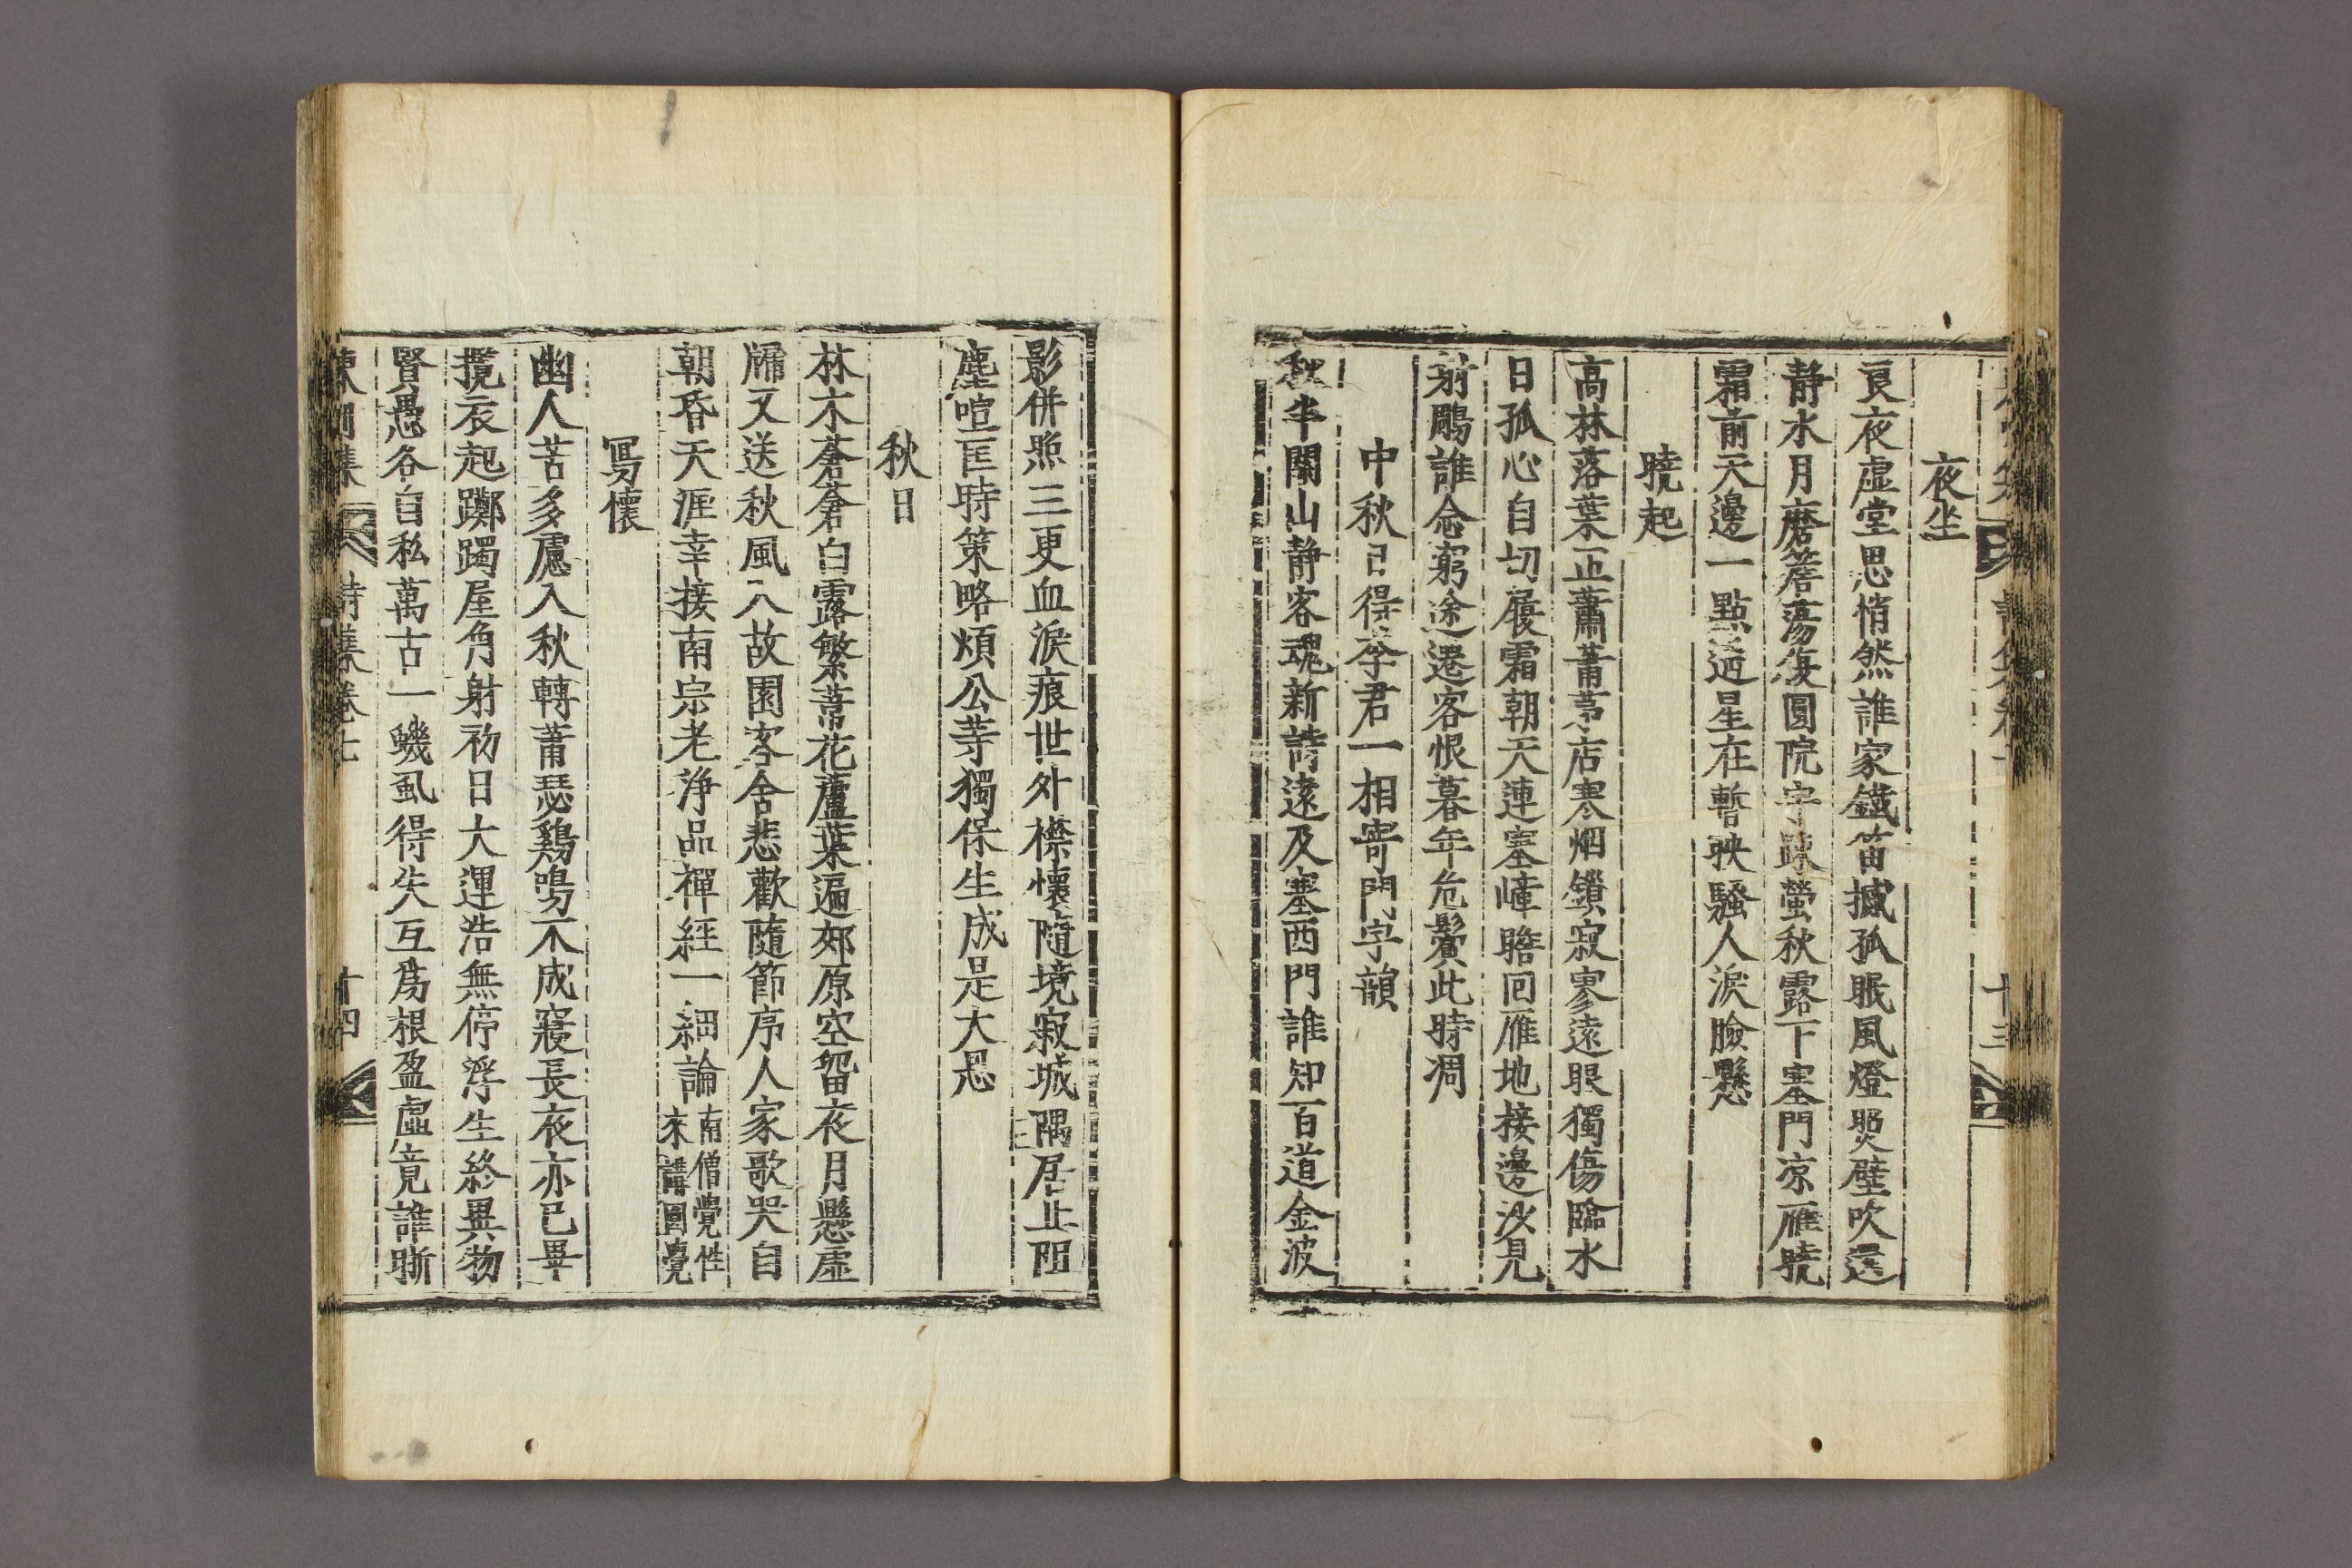 夜坐
良夜虛堂思悄然誰家鐵笛攪孤眠風燈煛壁吹還
靜水月磨簷蕩復圓院宇踈螢秋露下塞門凉雁曉
霜前天邊一點逈星在暫映騷人淚臉懸
曉起
高林落葉正蕭蕭茅店寒烟鎖寂寥遠眼獨傷臨水
日孤心自切履霜朝天連塞嶂瞻回雁地接邊沙見
射鵰誰念窮途遷客恨暮年危鬢此時凋
中秋已得李君一相寄門字韻
秋半關山靜客魂新詩遠及塞西門誰知一百道金波
影併照三更血淚痕世外襟懷隨境寂城隅居止阻
塵喧匡時策略煩公等獨保生成是大恩
秋日
林木蒼蒼白露繁葦花蘆葉遍郊原空留夜月懸虛
牖又送秋風入故園客舍悲歡隨節序人家歌哭自
朝昏天涯幸接南宗老淨品禪經一細論南僧覺性來講圓覺
寫懷
幽人苦多慮入秋轉蕭瑟鷄鳴不成寢長夜亦已畢
攬衣起躑躅屋角射初日大運浩無停浮生終異物
賢愚各自私萬古一蟣虱得失互爲根盈虛竟誰晰
詩集卷七
十四